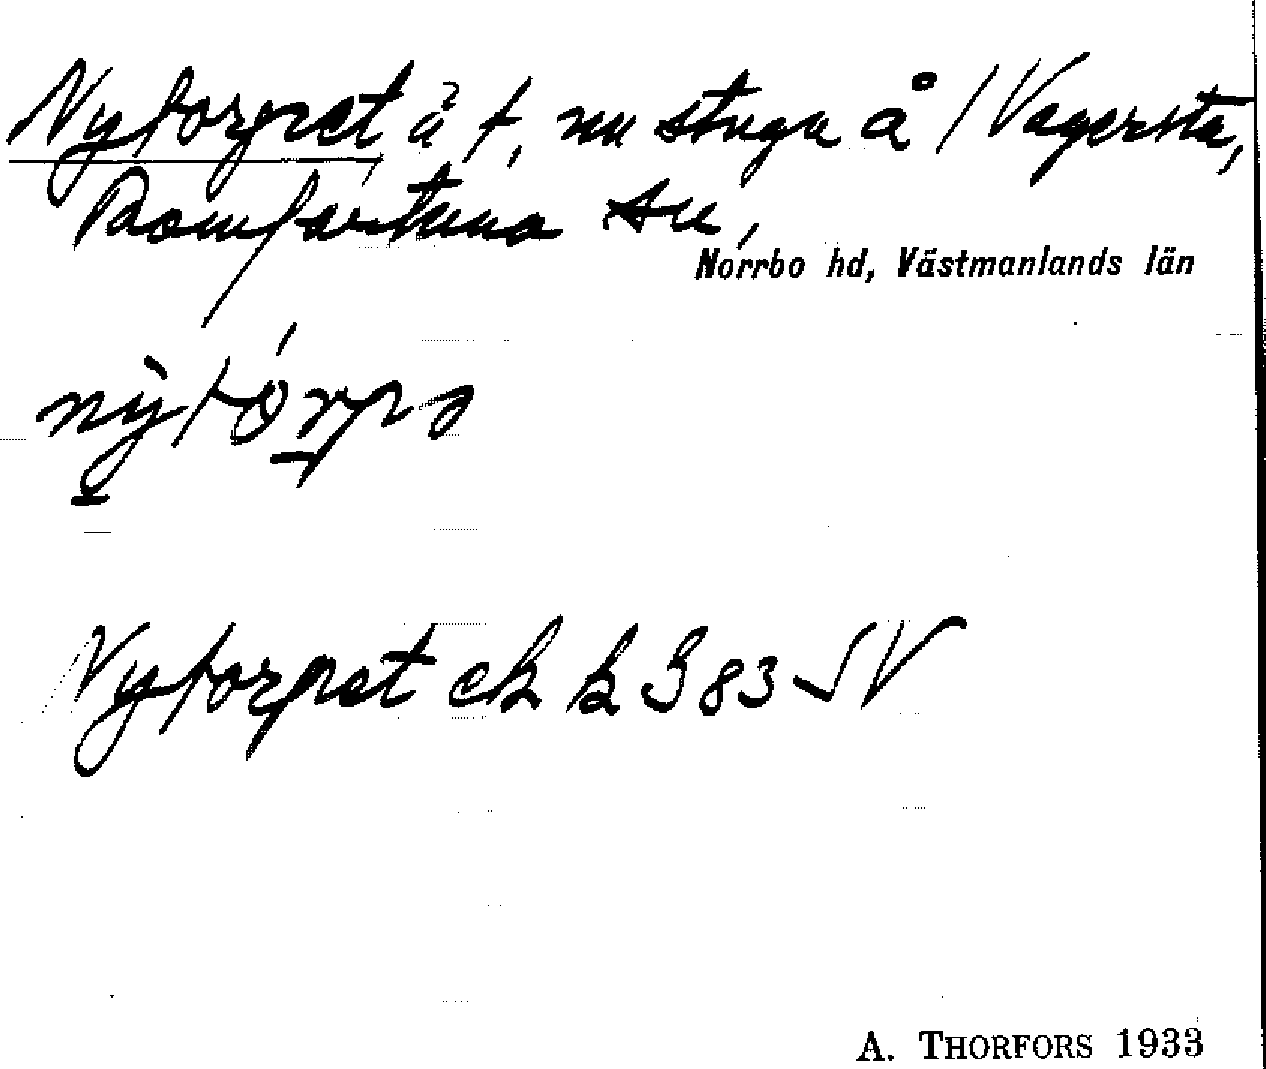 Nytorpet ä t, nu stuga å /Vagersta,
Romfartuna sn,
Norrbo hd, Västmanlands län
nỳtórpə
Nytorpet ek bl 383 SV
A. THORFORS 1933